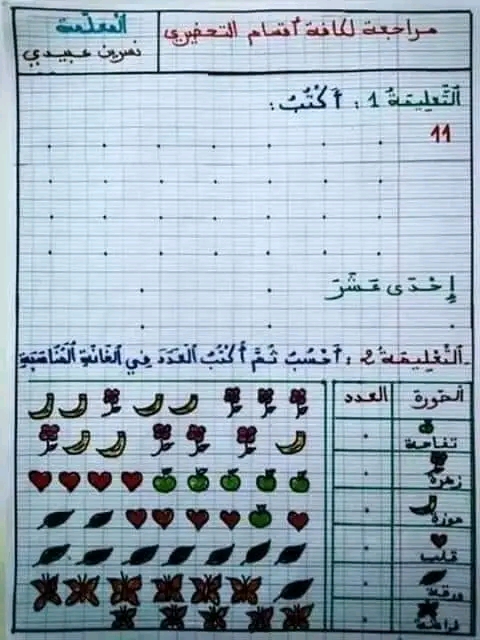 مراجعة لكافة أقسام التحضيري
المعلّمة
نسرين عبيدي
التَّعلِيمَةُ 1 : أَكْتُبُ :
11
إِحْدَى عَشَرَ
التَّعْلِيمَةُ 2 : أَحْسُبُ ثُمَّ أَكْتُبُ العَدَدَ فِي الخَانَةِ المُنَاسِبَةِ
الصّورة
العدد
تفاحة
زهرة
موزة
قلب
ورقة
فراشة